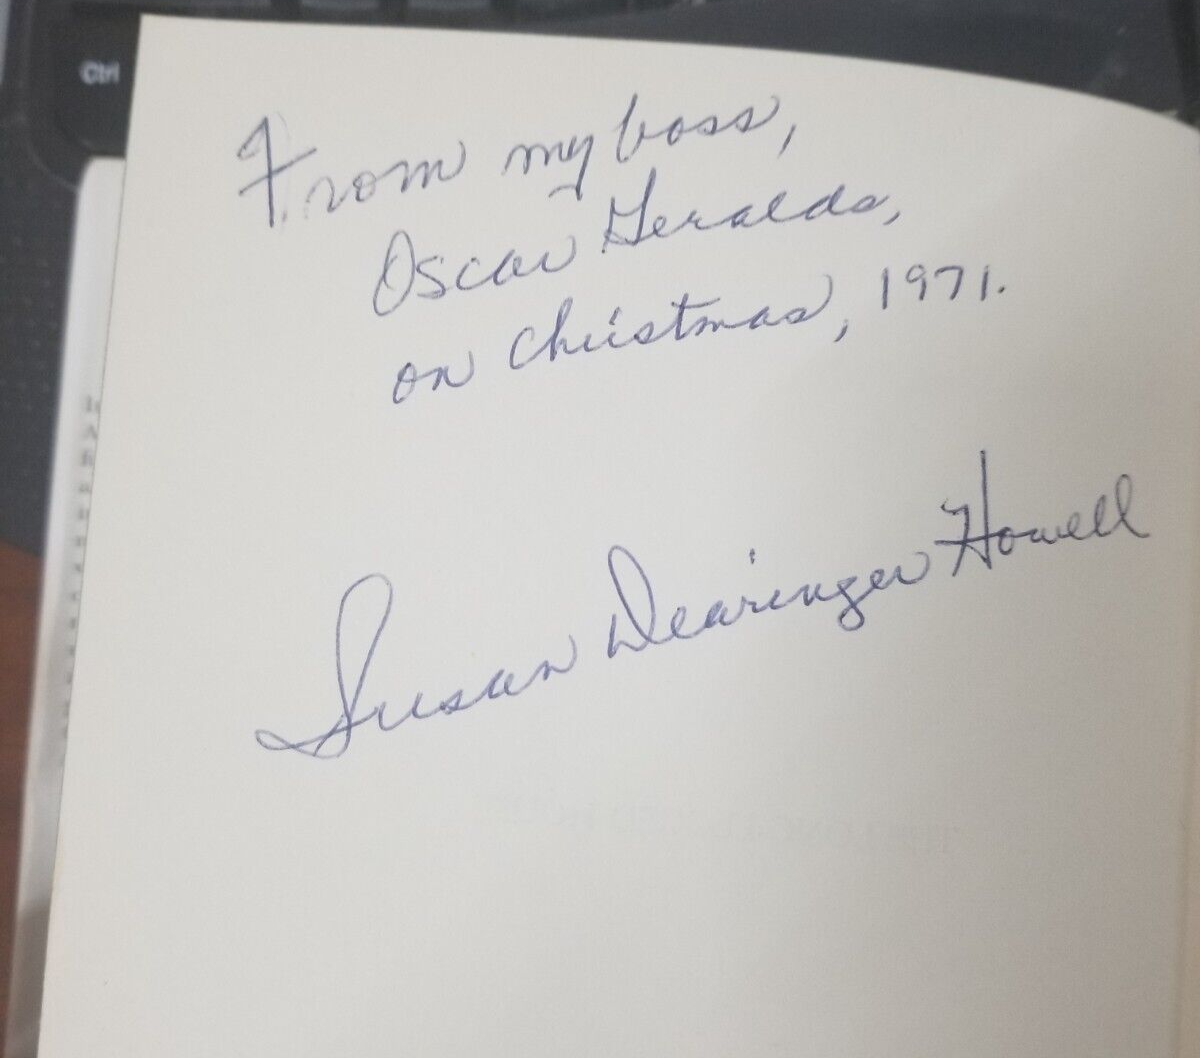 Ctrl
From my boss,
Oscar Geralds,
on Christmas, 1971.
Susan Dearinger Howell